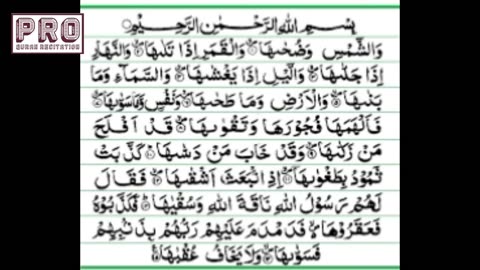 PRO
QURAN RECITATION
بِسْمِ اللهِ الرَّحْمٰنِ الرَّحِيْمِ
وَالشَّمْسِ وَضُحٰىهَا وَالْقَمَرِ اِذَا تَلٰىهَا وَالنَّهَارِ
اِذَا جَلّٰىهَا وَالَّيْلِ اِذَا يَغْشٰىهَا وَالسَّمَآءِ وَمَا
بَنٰىهَا وَالْاَرْضِ وَمَا طَحٰىهَا وَنَفْسٍ وَّمَاسَوّٰىهَا
فَاَلْهَمَهَا فُجُوْرَهَا وَتَقْوٰىهَا قَدْ اَفْلَحَ
مَنْ زَكّٰىهَا وَقَدْ خَابَ مَنْ دَسّٰىهَا كَذَّبَتْ
ثَمُوْدُ بِطَغْوٰىهَا اِذِ انْۢبَعَثَ اَشْقٰىهَا فَقَالَ
لَهُمْ رَسُوْلُ اللهِ نَاقَةَ اللهِ وَسُقْيٰهَا فَكَذَّبُوْهُ
فَعَقَرُوْهَا فَدَمْدَمَ عَلَيْهِمْ رَبُّهُمْ بِذَنْۢبِهِمْ
فَسَوّٰىهَا وَلَا يَخَافُ عُقْبٰهَا